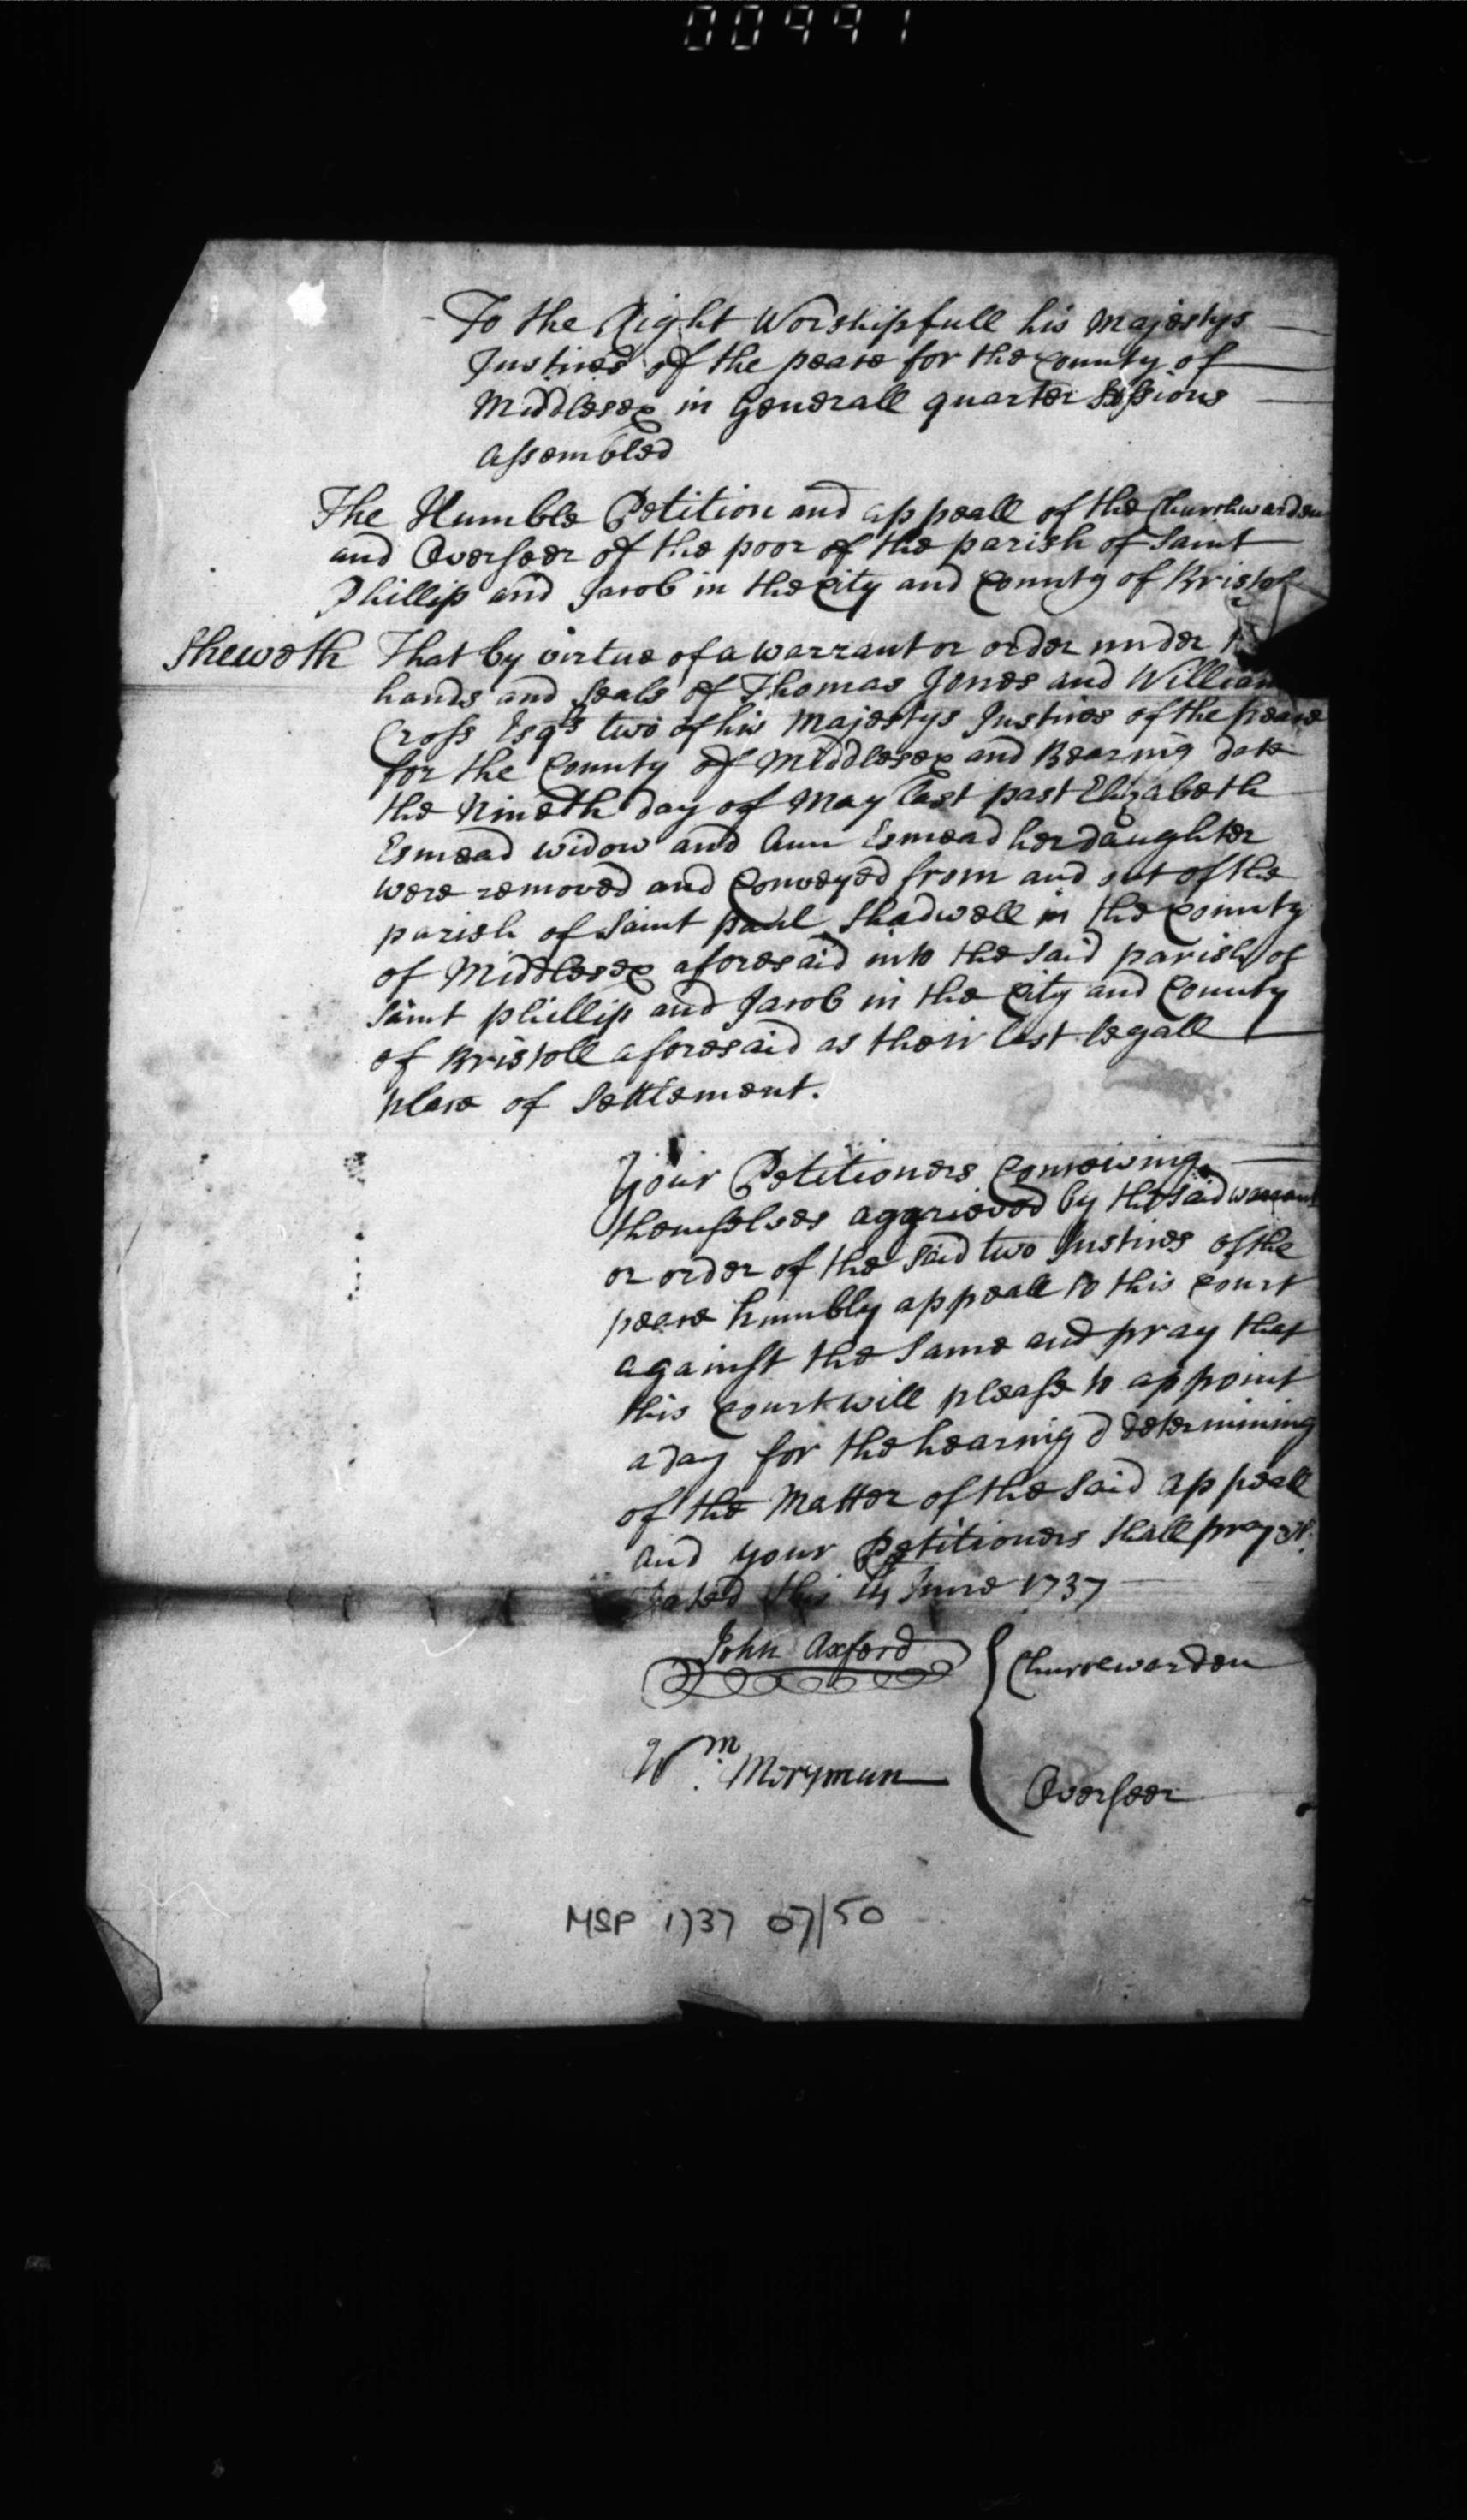 00991
To the Right Worshipfull his Majestys
Justices of the peace for the County of
Middlesex in Generall quarter Sessions
assembled
The Humble Petition and appeall of the Churchwarden
and Overseer of the poor of the parish of Saint
Phillip and Jacob in the City and County of Bristol
Sheweth That by virtue of a warrant or order under
hands and seals of Thomas Jones and William
Cross Esqrs two of his Majestys Justices of the peace
for the County of Middlesex and Bearing date
the Nineth day of May last past Elizabeth
Esmead widow and Ann Esmead her daughter
were removed and Conveyed from and out of the
parish of Saint paul Shadwell in the County
of Middlesex aforesaid into the said parish of
Saint phillip and Jacob in the City and County
of Bristoll aforesaid as their last legall
place of Settlement.
Your Petitioners Conceiving
themselves aggrieved by the said warrant
or order of the said two Justices of the
peace humbly appeall to this Court
against the same and pray that
this Court will please to appoint
a day for the hearing & determining
of the Matter of the said appeall
and your petitioners shall pray &c.
Dated this June 1737
John Axford Churcewarden
Wm. Moryman Overseer
MSP 1737 07/50